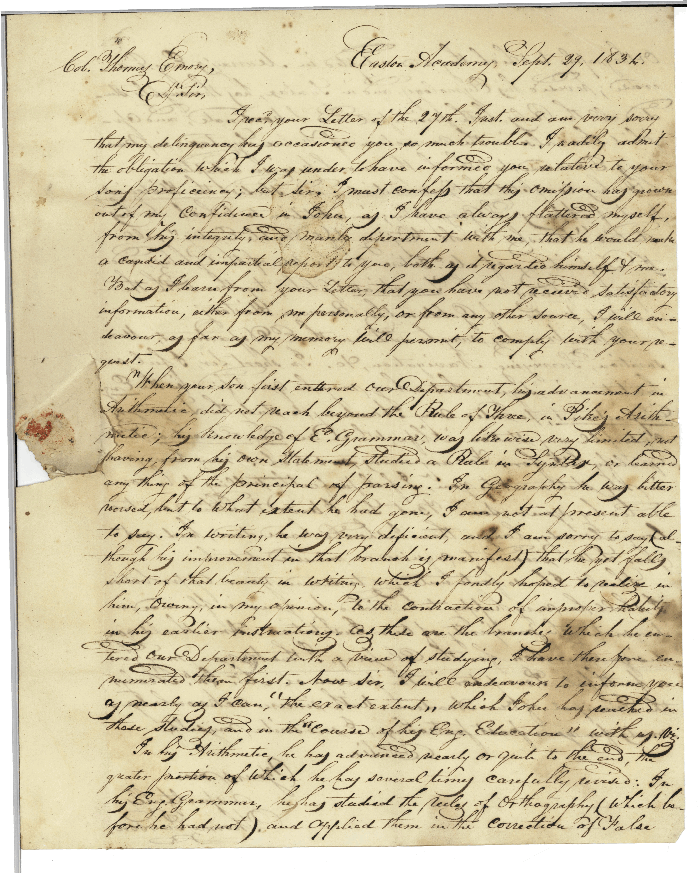 Easton Academy, Sept. 29, 1834.
Col. Thomas Emory,
Sir,
I recd. your Letter of the 27th. Inst. and am very sorry
that my delinquency has occasioned you so much trouble. I readily admit
the obligation which I was under to have informed you relative to your
son's proficiency; but, sir, I must confess that this omission has grown
out of my confidence in John, as I have always flattered myself,
from his integrity, and manly deportment with me, that he would make
a candid and impartial report to you, both as it regarded himself & me.
But as I learn from your Letter, that you have not received satisfactory
information, either from me personally, or from any other source, I will en-
deavour, as far as my memory will permit, to comply with your re-
quest.
When your son first entered our Department, his advancement in
Arithmetic, did not reach beyond the Rule of Three, in Pike's Arith-
metic; his knowledge of E. Grammar, was likewise very limited, not
having, from his own statement, studied a Rule in Syntax, or learned
any thing of the principal of parsing. In Geography he was better
versed, but to what extent he had gone, I am not at present able
to say. In writing, he was very deficient, and I am sorry to say (al-
though his improvement in that branch is manifest) that he yet falls
short of that beauty in writing which I fondly hoped to realize in
him, owing, in my opinion, to the contraction of improper habits
in his earlier instructions. As these are the branches which he en-
tered our Department with a view of studying, I have therefore en-
numerated them first. Now sir, I will endeavour to inform you
as nearly as I can, "the exact extent" which John has reached in
these studies, and in the "course of his Eng. Education" with us. Viz.
In his Arithmetic, he has advanced nearly or quite to the end, the
greater portion of which he has several times carefully revised: In
his Eng. Grammar, he has studied the rules of Orthography (which be-
fore he had not) and applied them in the correction of False